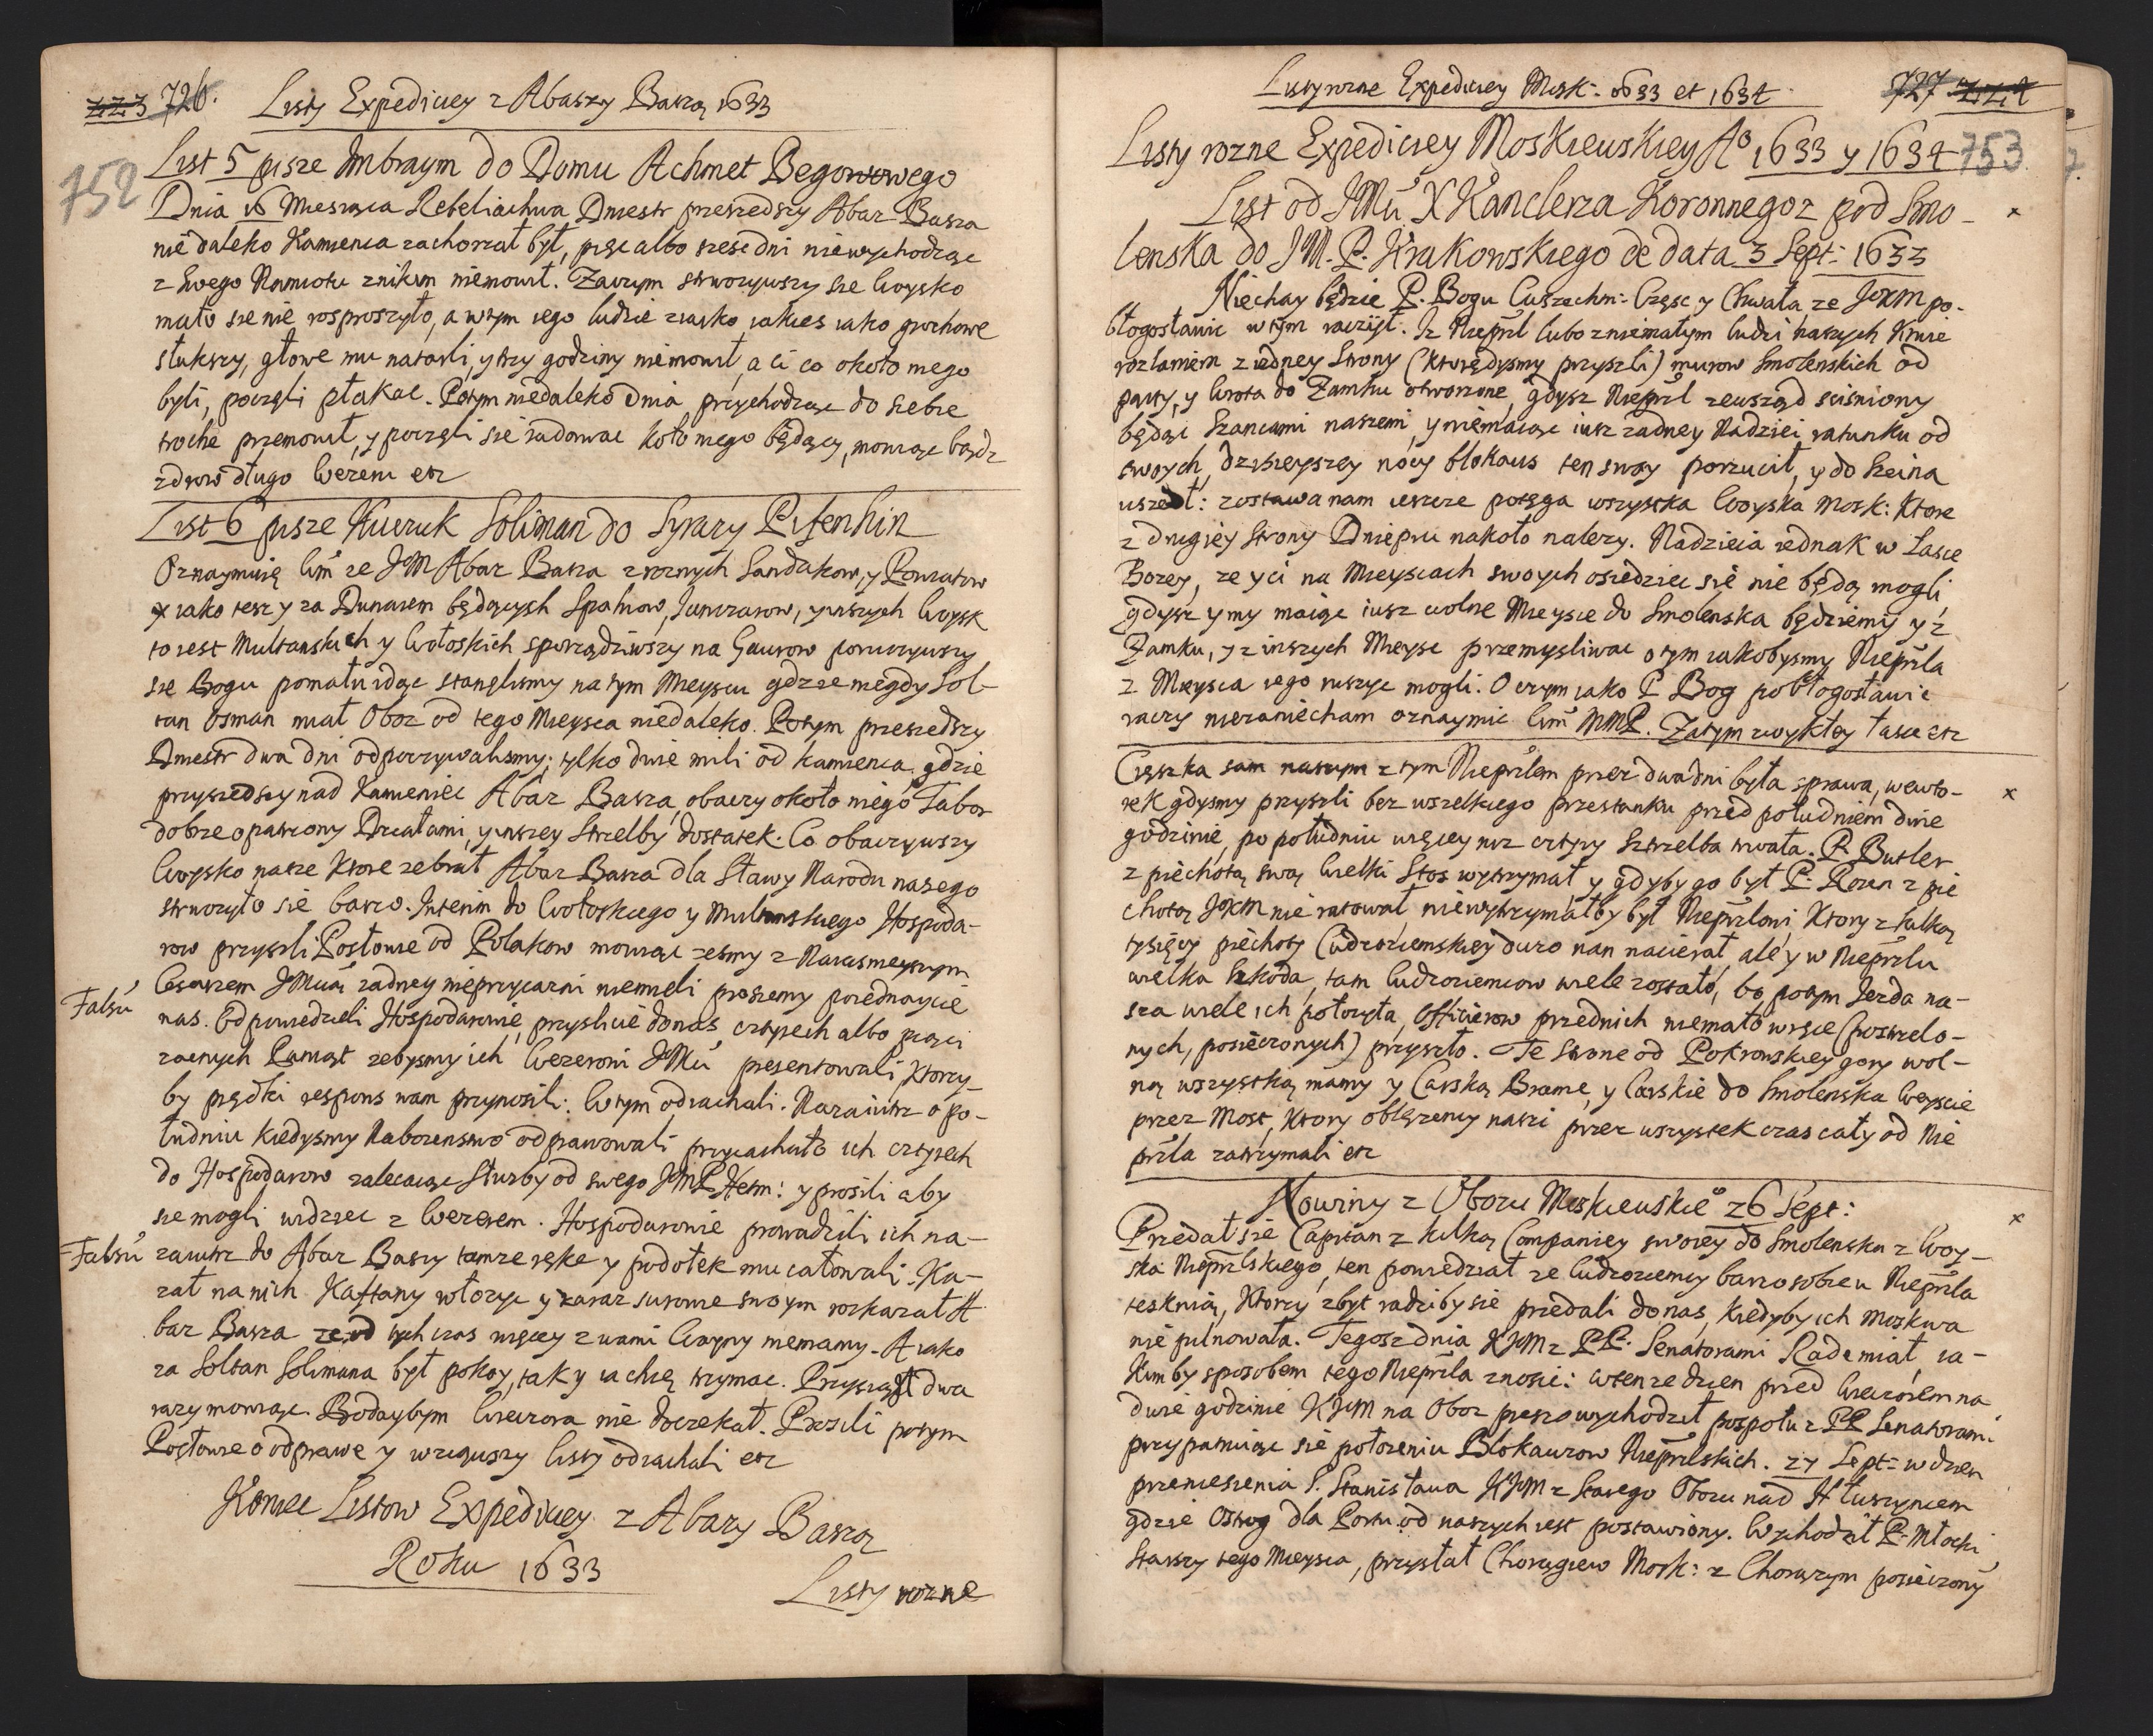 223 726. Listy Expediciey z Abaszy Baszą 1633
752
List 5 pisze Imbraym do Domu Achmet Begowowego
Dnia 16 Miesiąca Rebeliachwa Dniestr przeszedszy Abaz Basza
niedaleko Kamienca zachorzał był, pięc albo szesc dni niewychodząc
z swego Namiotu znikim niemowił. Zaczym strwozywszy sie Woysko
mało sie nie rosproszyło, a wtym iego ludzie ziasko iakies iako grochowe
stłukszy, głowe mu natarli, y trzy godziny niemowił, a ci co około niego
byli, poczęli płakac. Potym niedaleko Dnia przychodząc do siebie
troche przemowił, y poczęli sie radowac koło niego będący, mowiąc bądz
zdrow długo Wezeru etc
List 6 pisze Kuczuk Soliman do Syrazy Pifenhin
Oznaymuię Wm ze JM Abaz Basza z roznych Sandzakow, y Powiatow
iako tesz y za Dunaiem będących Spahiow, Janczarow, y inszych Woysk
to iest Multanskich y Wołoskich sporządziwszy na Gaurow poruczywszy
sie Bogu pomału idąc stanęlismy na tym Mieyscu gdzie niegdy Sol-
tan Osman miał Oboz od tego Mieysca niedaleko. Potym przeszedszy
Dniestr dwa dni odpoczywalismy; tylko dwie mili od kamienca, gdzie
przyszedszy nad Kamieniec Abaz Basza, obaczy około niego Tabor
dobrze opatrzony Działami, y inszey Strzelby dostatek. Co obaczywszy
Woysko nasze ktore zebrał Abaz Basza dla Sławy Narodu naszego
strwozyło sie barzo. Interim do Wołoskiego y Multanskiego Hospoda-
row przyszli Posłowie od Polakow mowiąc zesmy z Naiasnieyszym
Cesarzem JMcią zadney nieprzyiazni niemieli prosiemy poiednaycie
Falsu
nas. Odpowiedzieli Hospodarowie, przyslicie donas czterech albo pięci
zacnych Paniąt zebysmy ich Wezerowi JMci presentowali, ktorzy-
by prędki respons wam przyniesli: Wtym odiachali. Nazaiutrz o po-
łudniu kiedysmy Nabozenstwo odprawowali przyiachało ich czterech
do Hospodarow zalecaiąc Słuzby od swego JMP. Hetm: y prosili aby
sie mogli widziec z Wezerem. Hospodarowie prowadzili ich na-
Falsu zaiutrz do Abaz Baszy tamze ręke y podołek mu całowali. Ka-
zał na nich Kaftany włozyc y zaraz surowie swoym rozkazał A
baz Basza ze od tych czas więcey z wami Woyny niemamy. A iako
za Soltan Solimana był pokoy, tak y ia chcę trzymac. Przysiągł dwa
razy mowiąc. Bodaybym Wieczora nie doczekał. Prosili potym
Posłowie o odprawe y wziąwszy listy odiachali etc
Koniec Listow Expediciey z Abazy Baszą
Roku 1633
Listy rozne
Listy rozne Expediciey Mosk: 1633 et 1634. 727
Listy rozne Expediciey Moskiewskiey Aº 1633 y 1634 753
List od JMci X Kanclerza Koronnego z pod Smo-
lenska do J M. P. Krakowskiego de data 3 Sept: 1633
Niechay będzie P. Bogu Wszechm: Częsc y Chwała ze JKM po-
błogosławic w tym raczył. Iz Nieprzl lubo z niemałym ludzi naszych Krwie
rozlaniem z iedney Strony (ktorędysmy przyszli) murow Smolenskich od
party, y Wrota do Zamku otworzone, gdysz Nieprzl zewsząd scisniony
będąc Szancami naszemi, y niemaiąc iusz zadney Nadziei ratunku od
swoych, dzisieyszey nocy blokaus ten swoy porzucił, y do Szeina
uszedł: zostawa nam ieszcze potęga wszystka Woyska Mosk: ktore
z drugiey Strony Dniepru nakoło nalezy. Nadzieia iednak w Łasce
Bozey, ze y ci na Mieyscach swoych osiedziec się nie będą mogli,
gdysz y my maiąc iusz wolne Mieysce do Smolenska będziemy y z
Zamku, y z inszych Mieysc przemysliwac o tym iakobysmy Nieprzla
z Mieysca iego ruszyc mogli. O czym iako P Bog pobłogosławic
raczy niezaniecham oznaymic Wm MMP. Zatym zwykłey łasce etc
Cięszka sam naszym z tym Nieprzlem przez dwa dni była sprawa, wewto-
rek gdysmy przyszli bez wszelkiego przestanku przed południem dwie
godzinie, po południu więcey niz cztyry Sztrzelba trwała. P. Butler
z piechotą swą Wielki Stos wytrzymał y gdyby go był P. Rozen z pie
chotą JKM nie ratował niewytrzymałby był Nieprzlowi ktory z kilką
tysięcy piechoty Cudzoziemskiey duzo nan nacierał ale y w Nieprzlu
wielka Szkoda, tam Cudzoziemcow wiele zostało, bo potym Jezda na-
sza wiele ich połozyła, Officierow przednich niemało w ręce (postrzelo-
nych, posieczonych) przyszło. Te Strone od Pokrowskiey gory wol-
ną wszystką mamy y Carską Brame, y Carskie do Smolenska Weyscie
przez Most, ktory oblęzency naszi przez wszystek czas cały od Nie
przla zatrzymali etc
Nowiny z Obozu Moskiewskieº z 6 Sept:
Przedał sie Capitan z kilką Companiey swoiey do Smolenska z Woy-
ska Nieprzlskiego, ten powiedział ze Cudzoziemcy barzo sobie u Nieprzla
tesknią, ktorzy zbyt radziby sie przedali donas, kiedyby ich Moskwa
nie pilnowała. Tegosz dnia KJM z PP. Senatorami Rade miał, ia-
kimby sposobem tego Nieprzla znosic: Wtenze dzien przed Wieczorem na
dwie godzinie KJM na Oboz pieszo wychodził pospołu z PP Senatorami
przypatruiąc sie połozeniu Blokauzow Nieprzlskich. z 7 Sept: w dzien
przeniesienia S. Stanisława KJM z Starego Obozu nad Hłuszyncem
gdzie Ostrog dla Portu od naszych iest postawiony. Wychodził P. Młocki
Starszy tego Mieysca, przysłał Chorągiew Mosk: z Chorązym posieczony